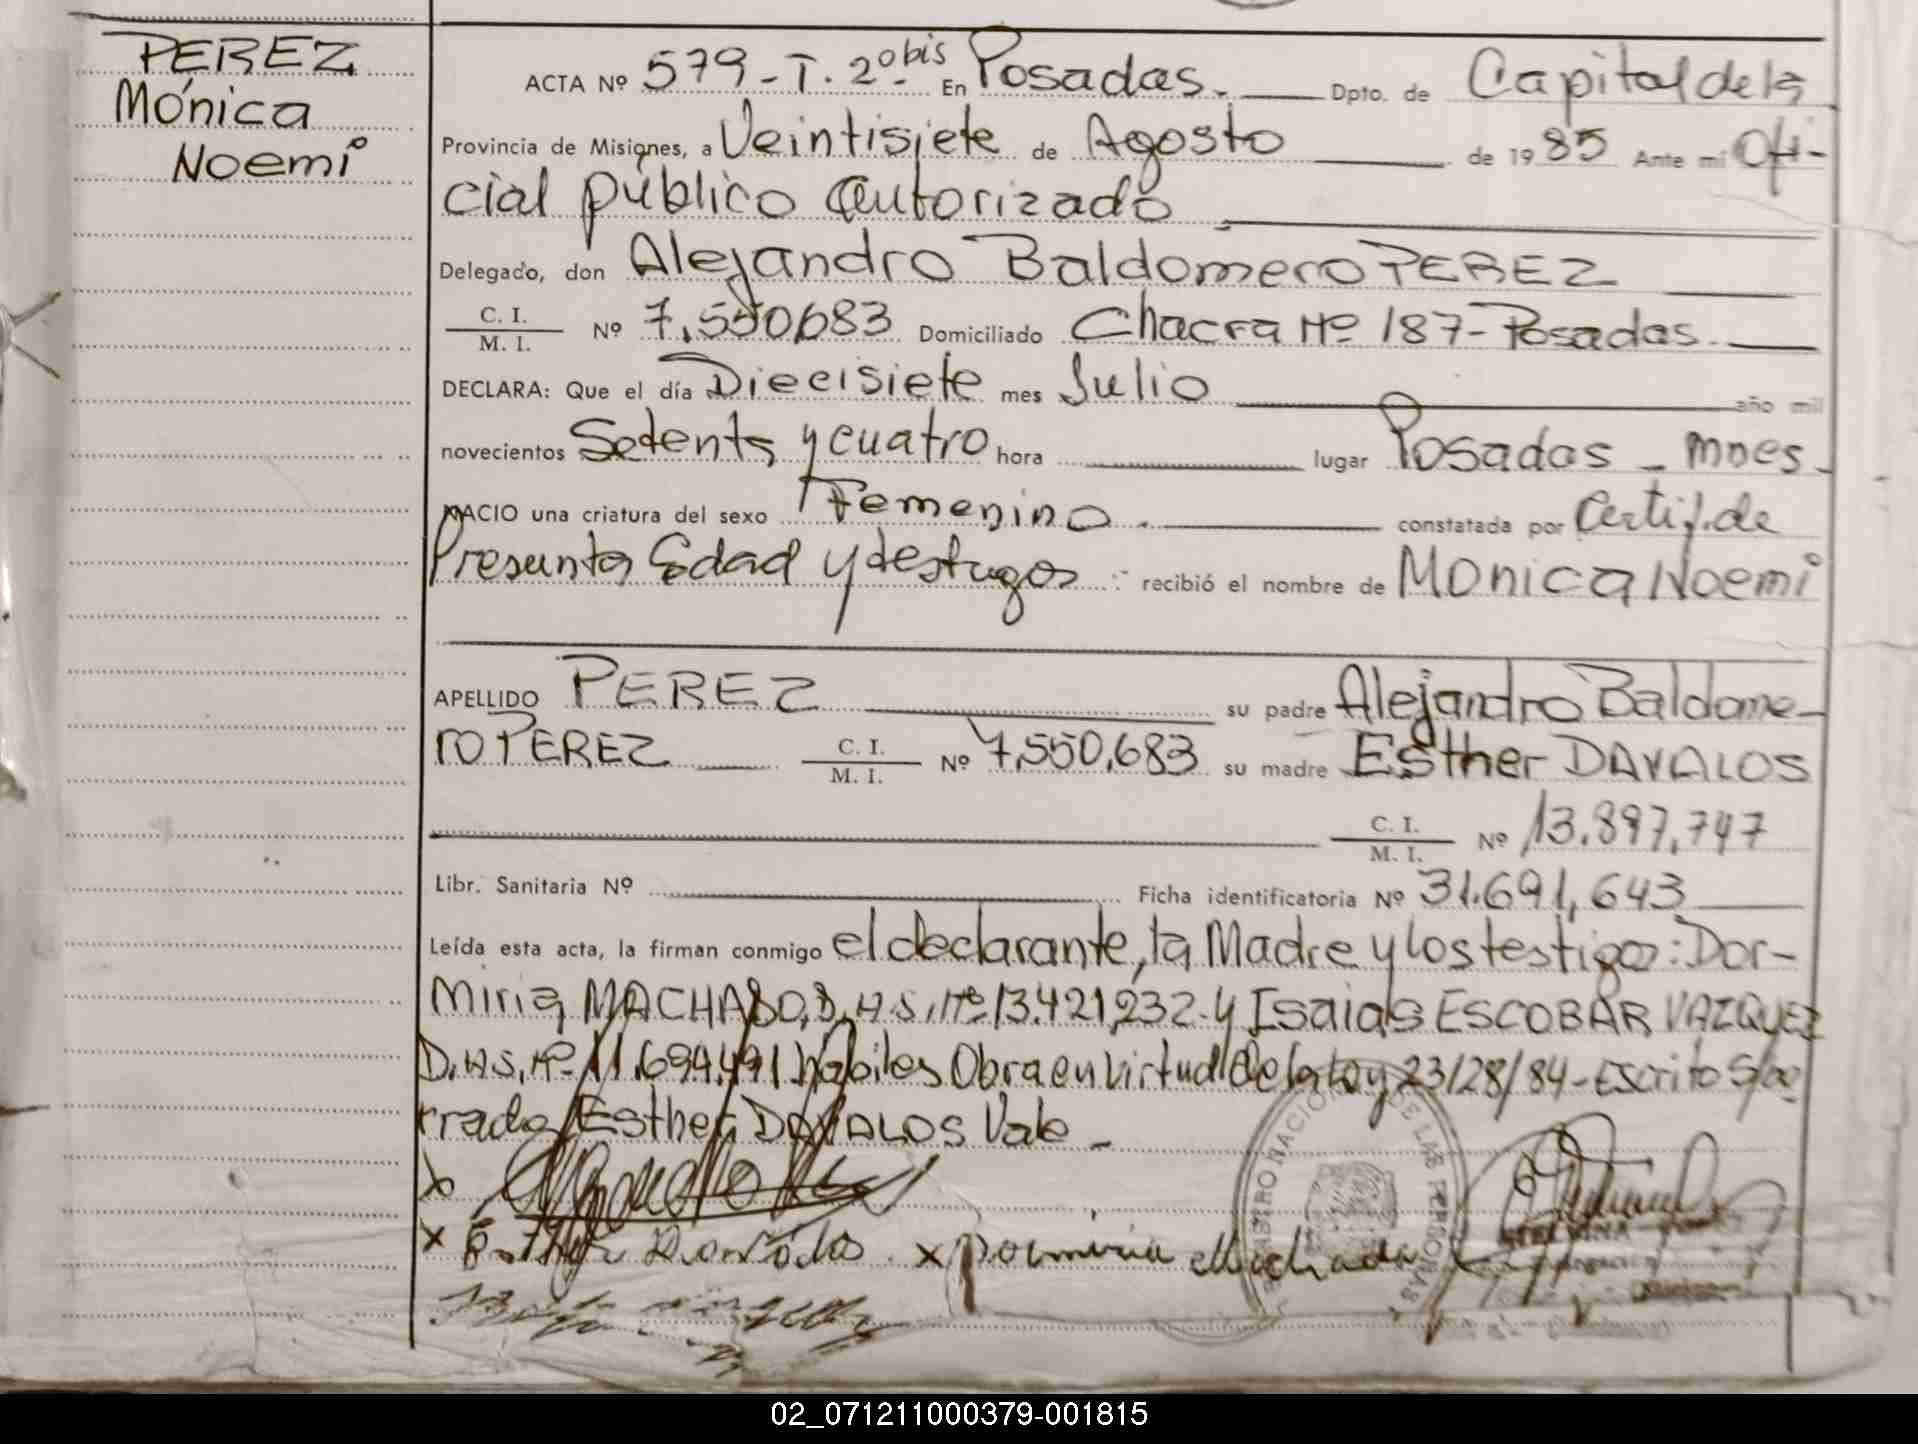 PEREZ
Mónica
Noemi
ACTA Nº 579-T. 2º bis En Posadas. Dpto. de Capital de la
Provincia de Misiones, a Veintisiete de Agosto de 1985 Ante mi Ofi-
cial público autorizado
Delegado, don Alejandro Baldomero PEREZ
C. I.
M. I. Nº 7.550683 Domiciliado Chacra Nº 187-Posadas.
DECLARA: Que el día Diecisiete mes Julio año mil
novecientos Setenta y cuatro hora lugar Posadas - Mnes.
NACIO una criatura del sexo Femenino. constatada por Certif. de
Presunta Edad y testigos :- recibió el nombre de MONica Noemi
APELLIDO PEREZ su padre Alejandro Baldome-
ro PEREZ C. I.
M. I. Nº 7,550,683 su madre Esther DAVALOS
C. I.
M. I. Nº 13.897,747
Libr. Sanitaria Nº Ficha identificatoria Nº 31.691,643
Leída esta acta, la firman conmigo el declarante, la Madre y los testigos: Dor-
miria MACHADO, D.N.I. Nº 13.421,232-y Isaias ESCOBAR VAZQUEZ
D.N.I. Nº 11.694.491 hábiles Obra en virtud de la Ley 23/28/84-Escrito S/bo
rrado Esther DAVALOS Vale -
x
x Esther Davalos x Dormiria Machado
REGISTRO NACIONAL DE LAS PERSONAS
02_071211000379-001815